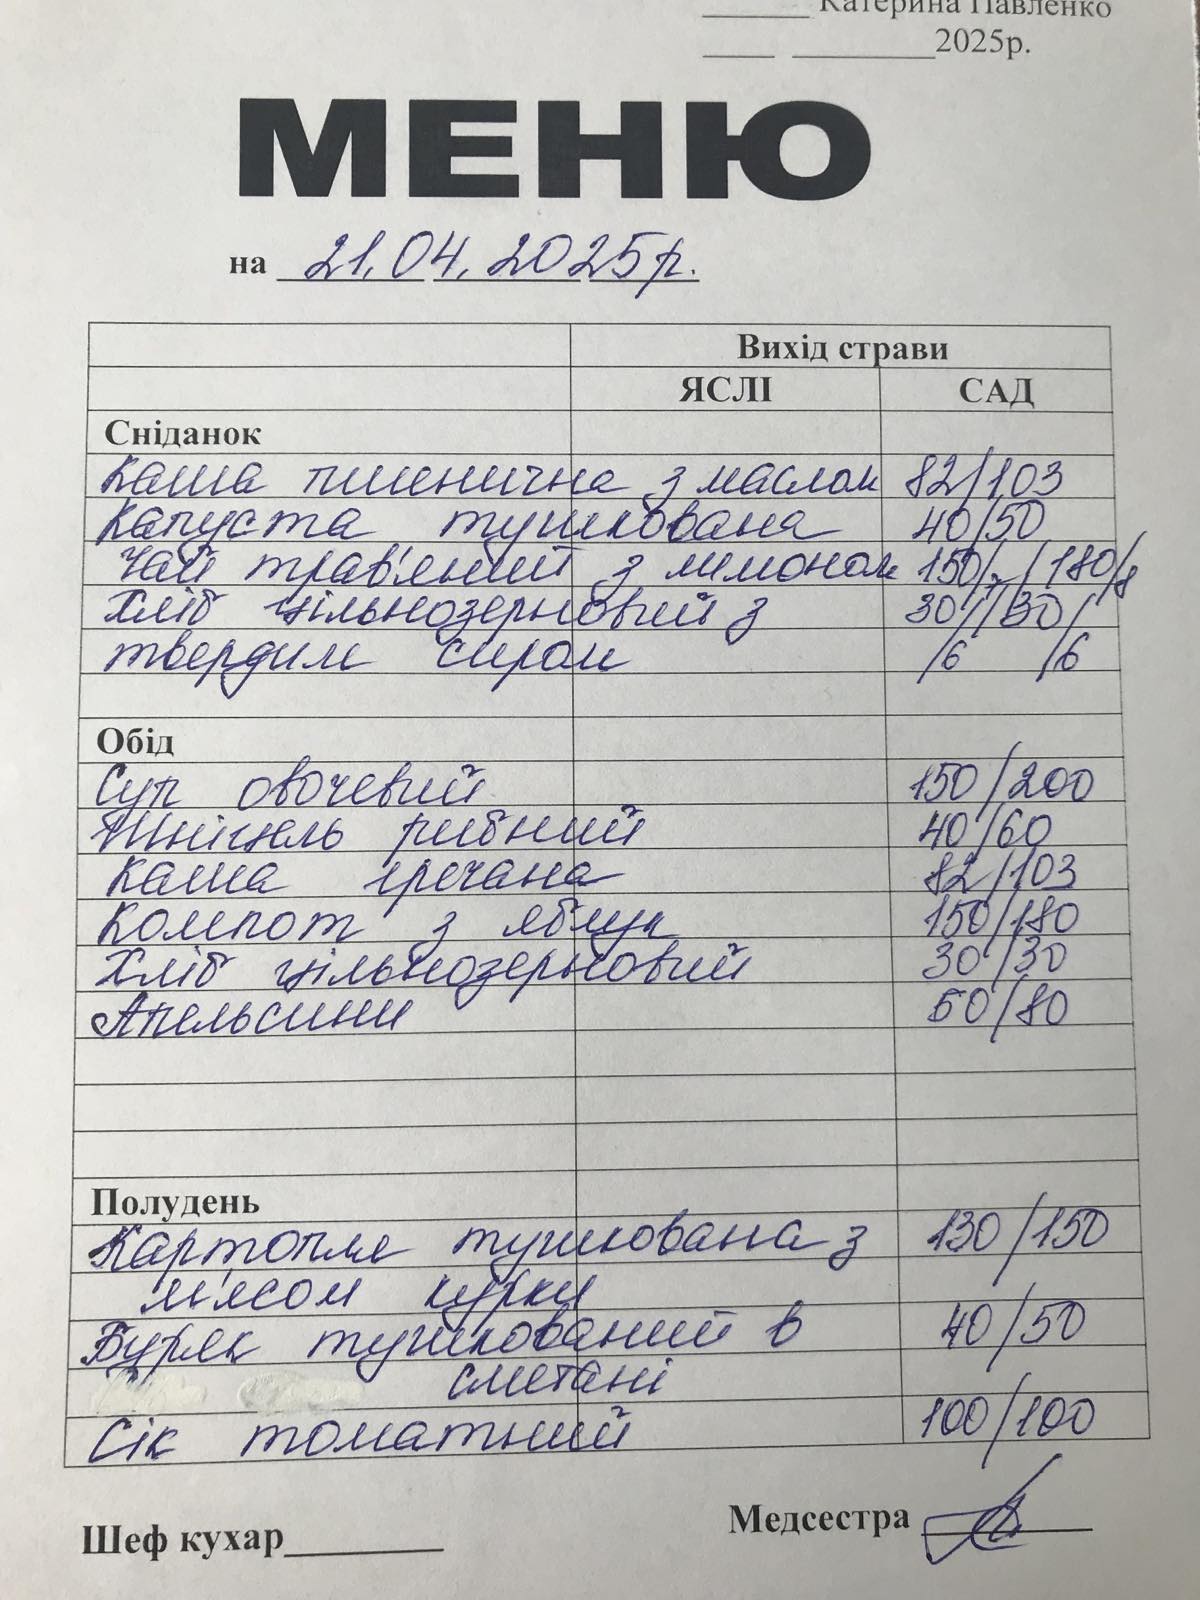 ______ Катерина Павленко
____ ________2025р.
МЕНЮ
на 21.04.2025р.
Вихід страви
ЯСЛІ САД
Сніданок
Каша пшенична з маслом 82/103
Капуста тушкована 40/50
Чай трав'яний з лимоном 150/7/180/8
Хліб цільнозерновий з 30/ /30/
твердим сиром /6 /6
Обід
Суп овочевий 150/200
Шніцель рибний 40/60
Каша гречана 82/103
Компот з яблук 150/180
Хліб цільнозерновий 30/30
Апельсини 50/80
Полудень
Картопля тушкована з 130/150
м'ясом курки
Буряк тушкований в 40/50
сметані
Сік томатний 100/100
Медсестра
Шеф кухар________